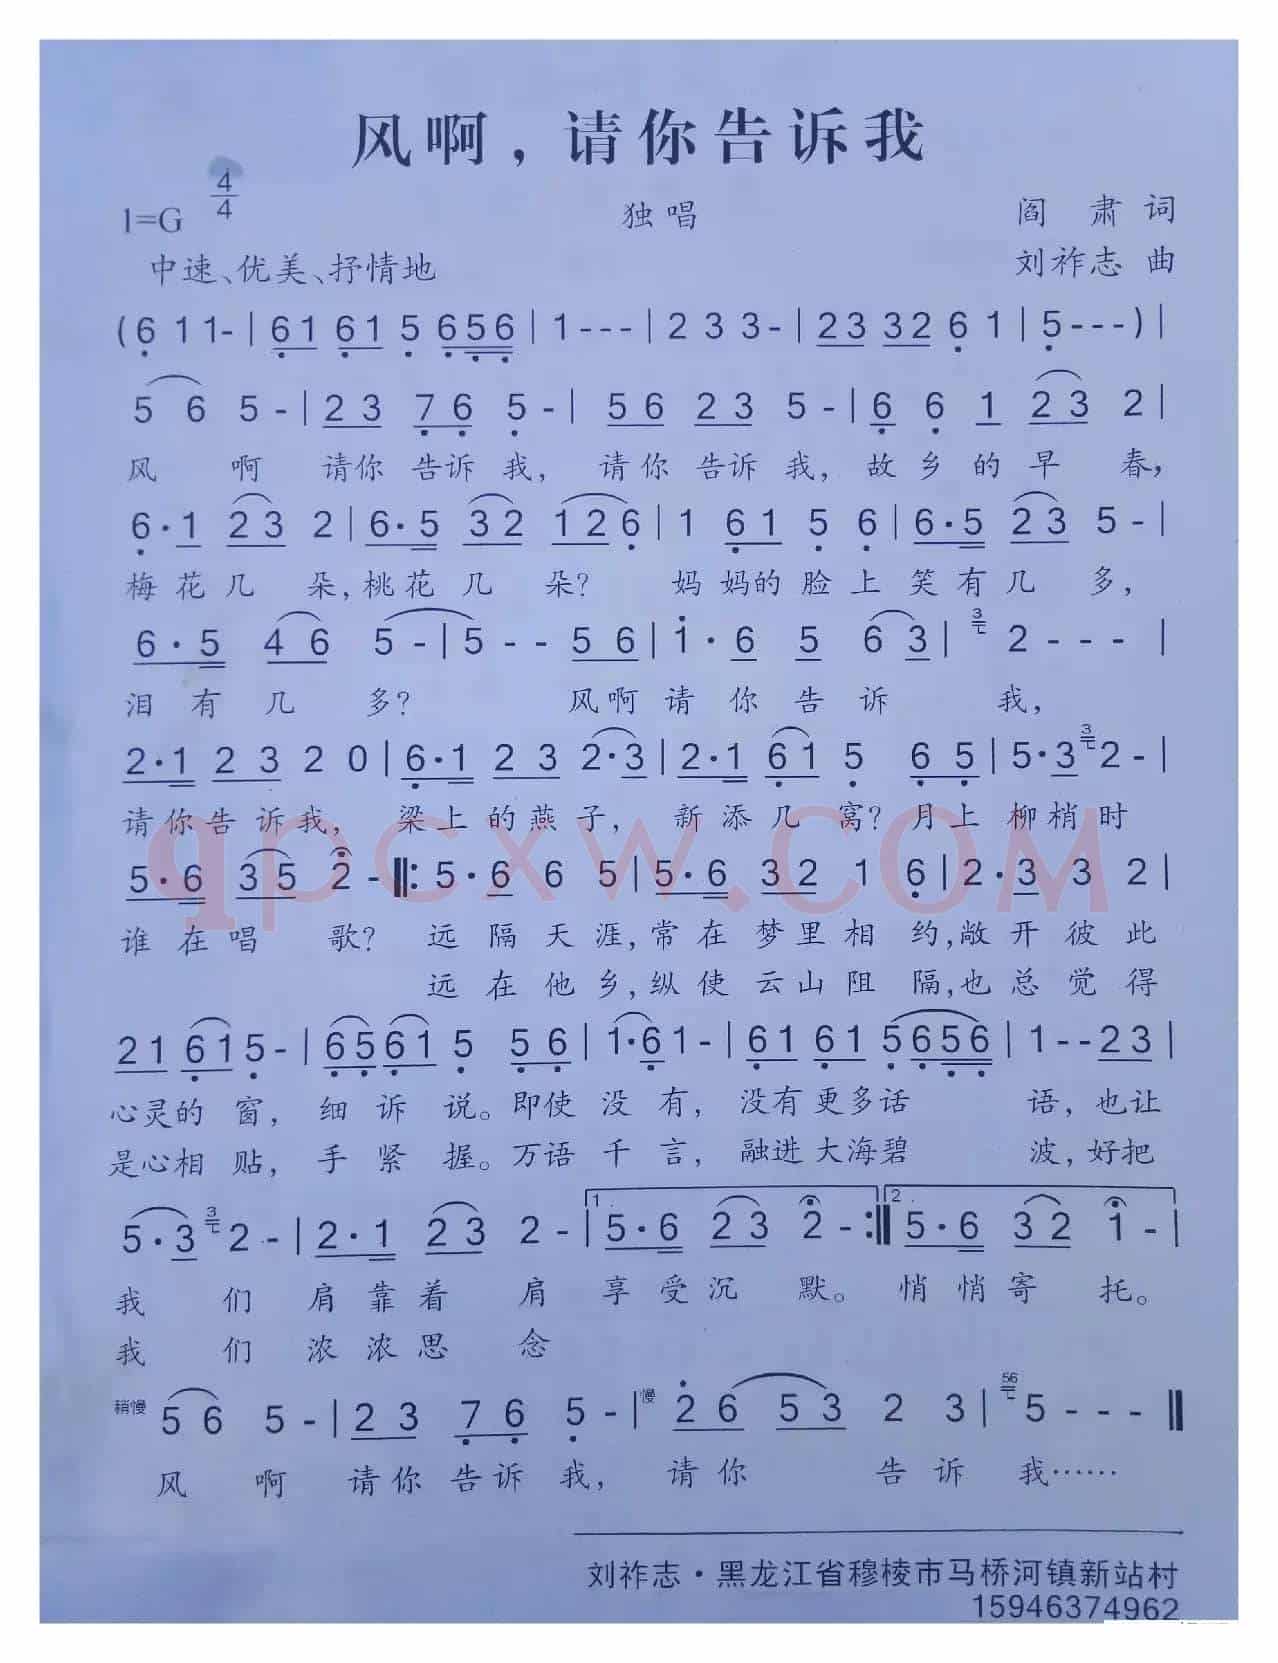 风啊，请你告诉我
1=G 4/4
独唱
阎 肃 词
中速、优美、抒情地
刘祚志 曲
(6 1 1- | 6 1 6 1 5 6 5 6 | 1 - - - | 2 3 3 - | 2 3 3 2 6 1 | 5 - - - ) |
5 6 5 - | 2 3 7 6 5 - | 5 6 2 3 5 - | 6 6 1 2 3 2 |
风 啊 请你 告诉 我， 请你 告诉 我， 故乡的早 春，
6·1 2 3 2 | 6·5 3 2 1 2 6 | 1 6 1 5 6 | 6·5 2 3 5 - |
梅花几 朵，桃花几 朵？ 妈妈的脸上笑有几 多，
6·5 4 6 5 - | 5 - - 5 6 | 1·6 5 6 3 | 3 2 - - - |
泪有几 多？ 风啊请你告诉 我，
2·1 2 3 2 0 | 6·1 2 3 2·3 | 2·1 6 1 5 6 5 | 5·3 3 2 - |
请你告诉我， 梁上的燕子， 新添几窝？月上柳梢时
5·6 3 5 2 - ‖: 5·6 6 5 | 5·6 3 2 1 6 | 2·3 3 2 |
谁在唱 歌？ 远隔天涯，常在梦里相 约，敞开彼此
远在他乡，纵使云山阻 隔，也总觉得
2 1 6 1 5 - | 6 5 6 1 5 5 6 | 1·6 1 - | 6 1 6 1 5 6 5 6 | 1 - - 2 3 |
心灵的 窗， 细诉 说。即使没有， 没有更多话 语，也让
是心相 贴， 手紧 握。万语千言， 融进大海碧 波，好把
5·3 3 2 - | 2·1 2 3 2 - | 1. 5·6 2 3 2 - :‖ 2. 5·6 3 2 1 - |
我 们 肩靠着 肩 享受沉 默。 悄悄寄 托。
我 们 浓浓思 念
稍慢 5 6 5 - | 2 3 7 6 5 - | 慢 2 6 5 3 2 3 | 56 5 - - - ‖
风 啊 请你告诉 我， 请你 告诉 我……
qpcxw.com
刘祚志·黑龙江省穆棱市马桥河镇新站村
15946374962